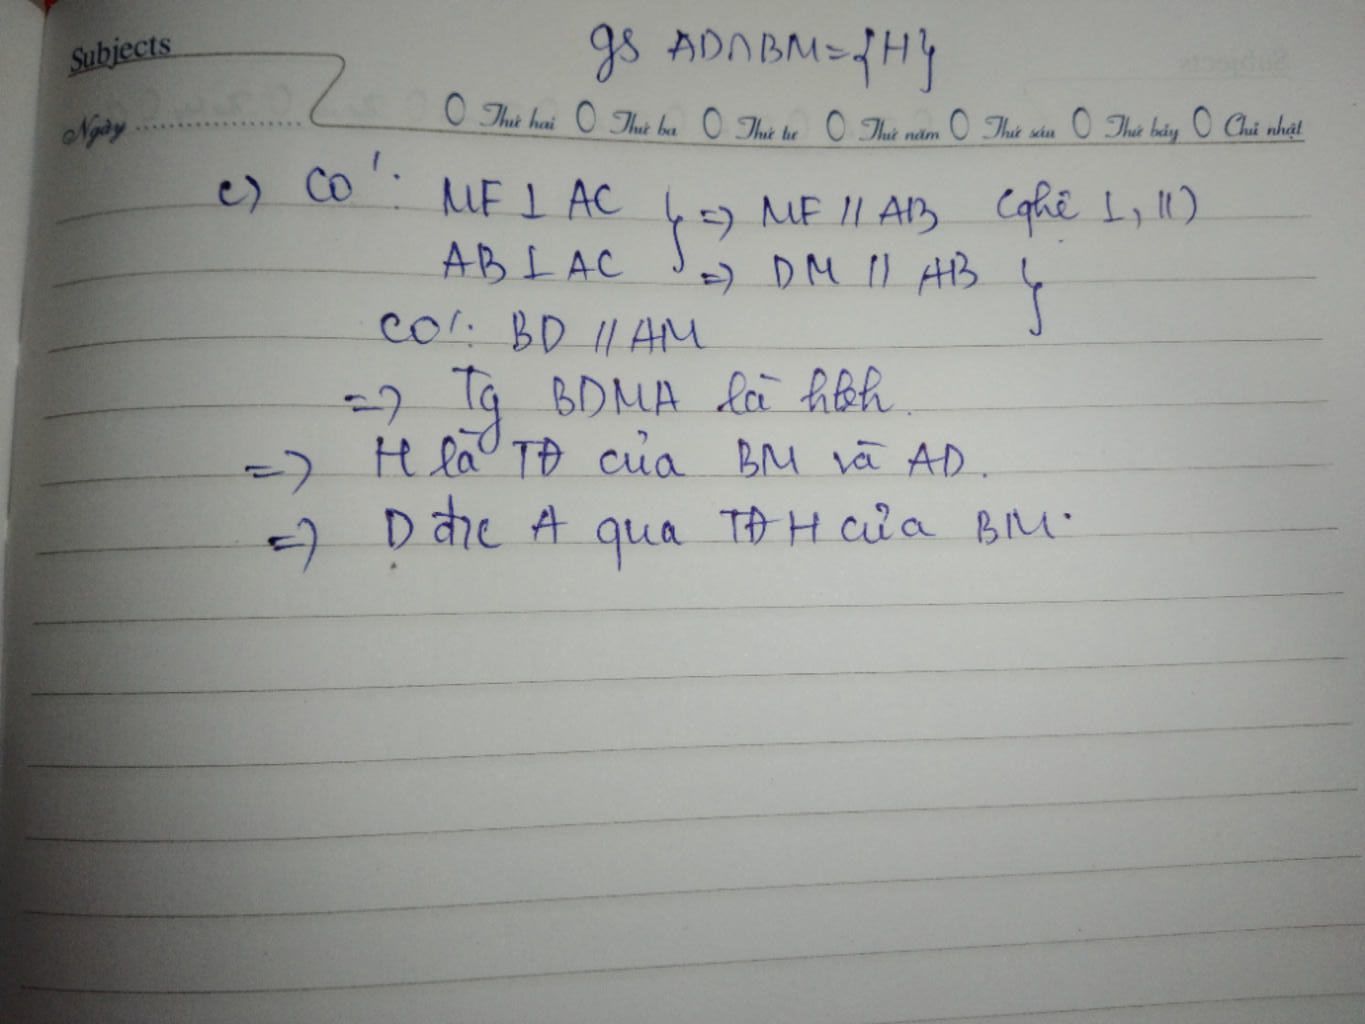 Subjects
gs AD∩BM={H}
Ngày ........................ Thứ hai Thứ ba Thứ tư Thứ năm Thứ sáu Thứ bảy Chủ nhật
c) Có: MF ⊥ AC } => MF // AB (qhệ ⊥, //)
AB ⊥ AC => DM // AB }
Có: BD // AM
=> Tg BDMA là hbh.
=> H là TĐ của BM và AD.
=> D đx A qua TĐ H của BM.